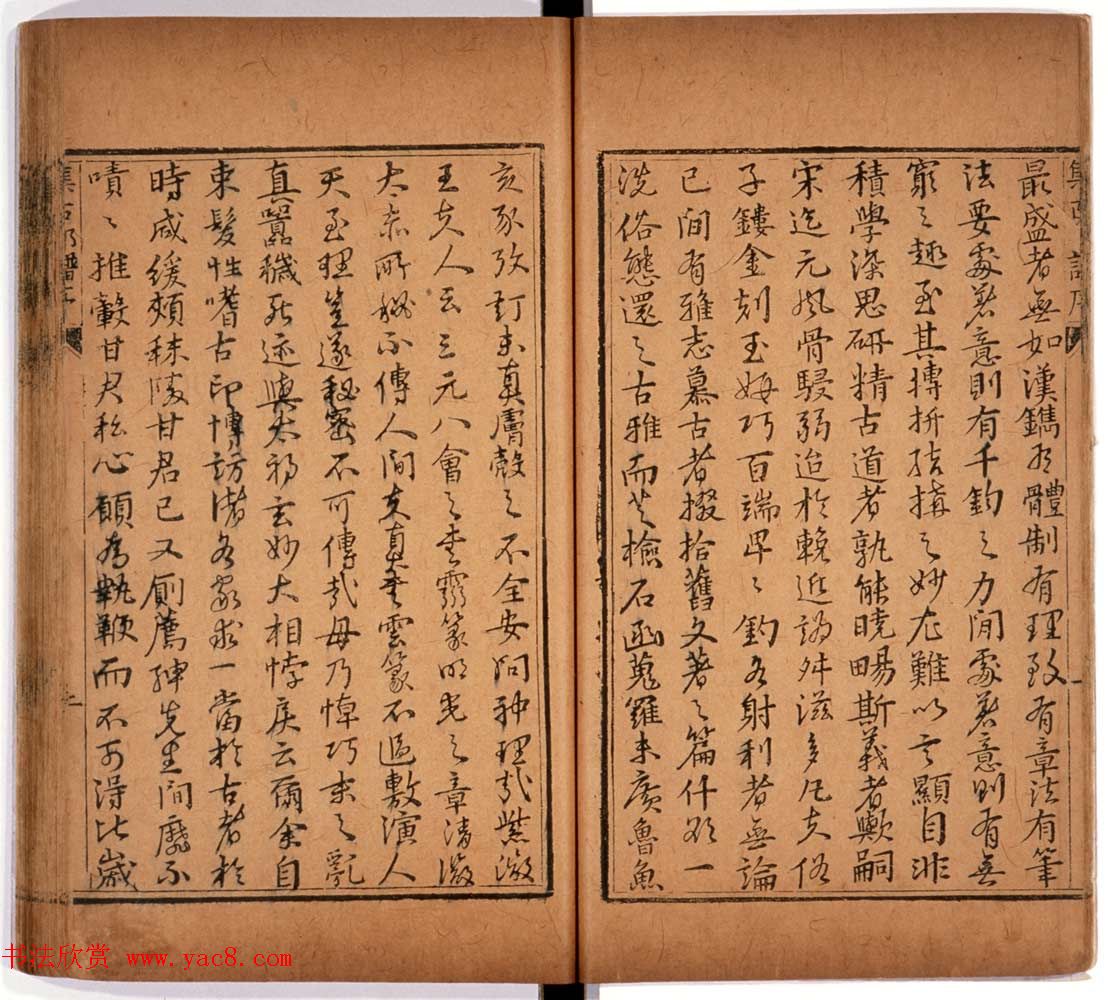 最盛者無如漢鐫有體制有理致有章法有筆
法要處著意則有千鈞之力閒處著意則有無
窮之趣至其摶捖結搆之妙尤難以言顯自非
積學深思研精古道者孰能曉暢斯義者歟嗣
宋迄元風骨駸弱迨於輓近譌舛滋多凡夫俗
子鏤金刻玉姆巧百端卑之釣名射利者無論
已間有雅志慕古者掇拾舊文著之篇什欲一
洗俗態還之古雅而芝檢石函蒐羅未廣魯魚
亥豕攷訂未真膚殼之不全安問神理哉紫微
王夫人云三元八會之書霛篆明光之章清微
太素所秘不傳人間夫真書雲篆不過敷演人
天至理豈遂秘密不可傳哉毋乃悼巧末之亂
真囂穢死迹與太初玄妙大相悖戾云爾余自
束髮性嗜古印博訪諸名家求一當於古者於
時咸緩頰秣陵甘君已又厠薦紳先生間靡不
嘖嘖推轂甘君私心願為執鞭而不可得比歲
集古印譜序
書法欣赏 www.yac8.com